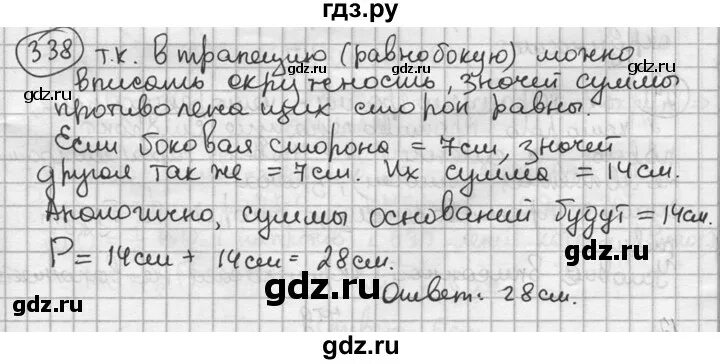 гдз.ру
338 т.к. в трапецию (равнобокую) можно
gdz.ru
вписать окружность, значит суммы
gdz.ru gdz.ru
противолежащих сторон равны.
gdz.ru
Если боковая сторона = 7см, значит
gdz.ru
другая так же = 7см. Их сумма = 14см.
gdz.ru
Аналогично, суммы оснований будут = 14см.
gdz.ru gdz.ru
P = 14см + 14см = 28см.
gdz.ru
Ответ: 28см.
gdz.ru gdz.ru